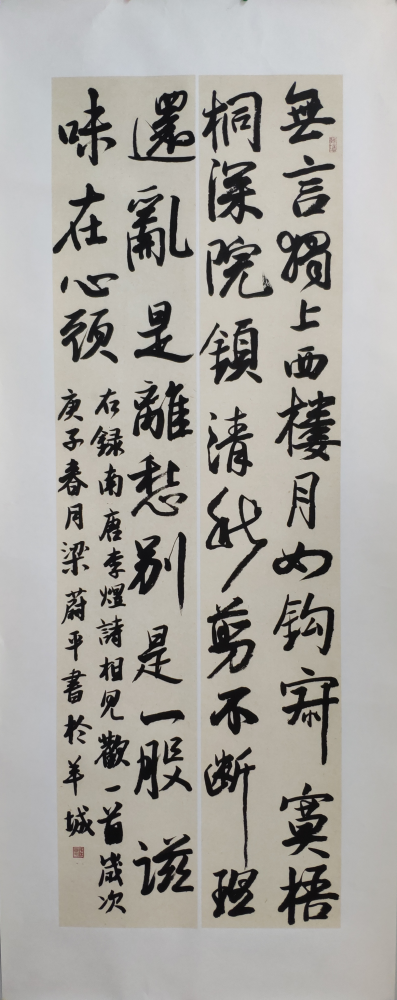 無言獨上西樓月如鈎寂寞梧
桐深院鎖清秋剪不斷理
還亂是離愁別是一股滋
味在心頭
右録南唐李煜詩相見歡一首歲次
庚子春月梁蔚平書於羊城